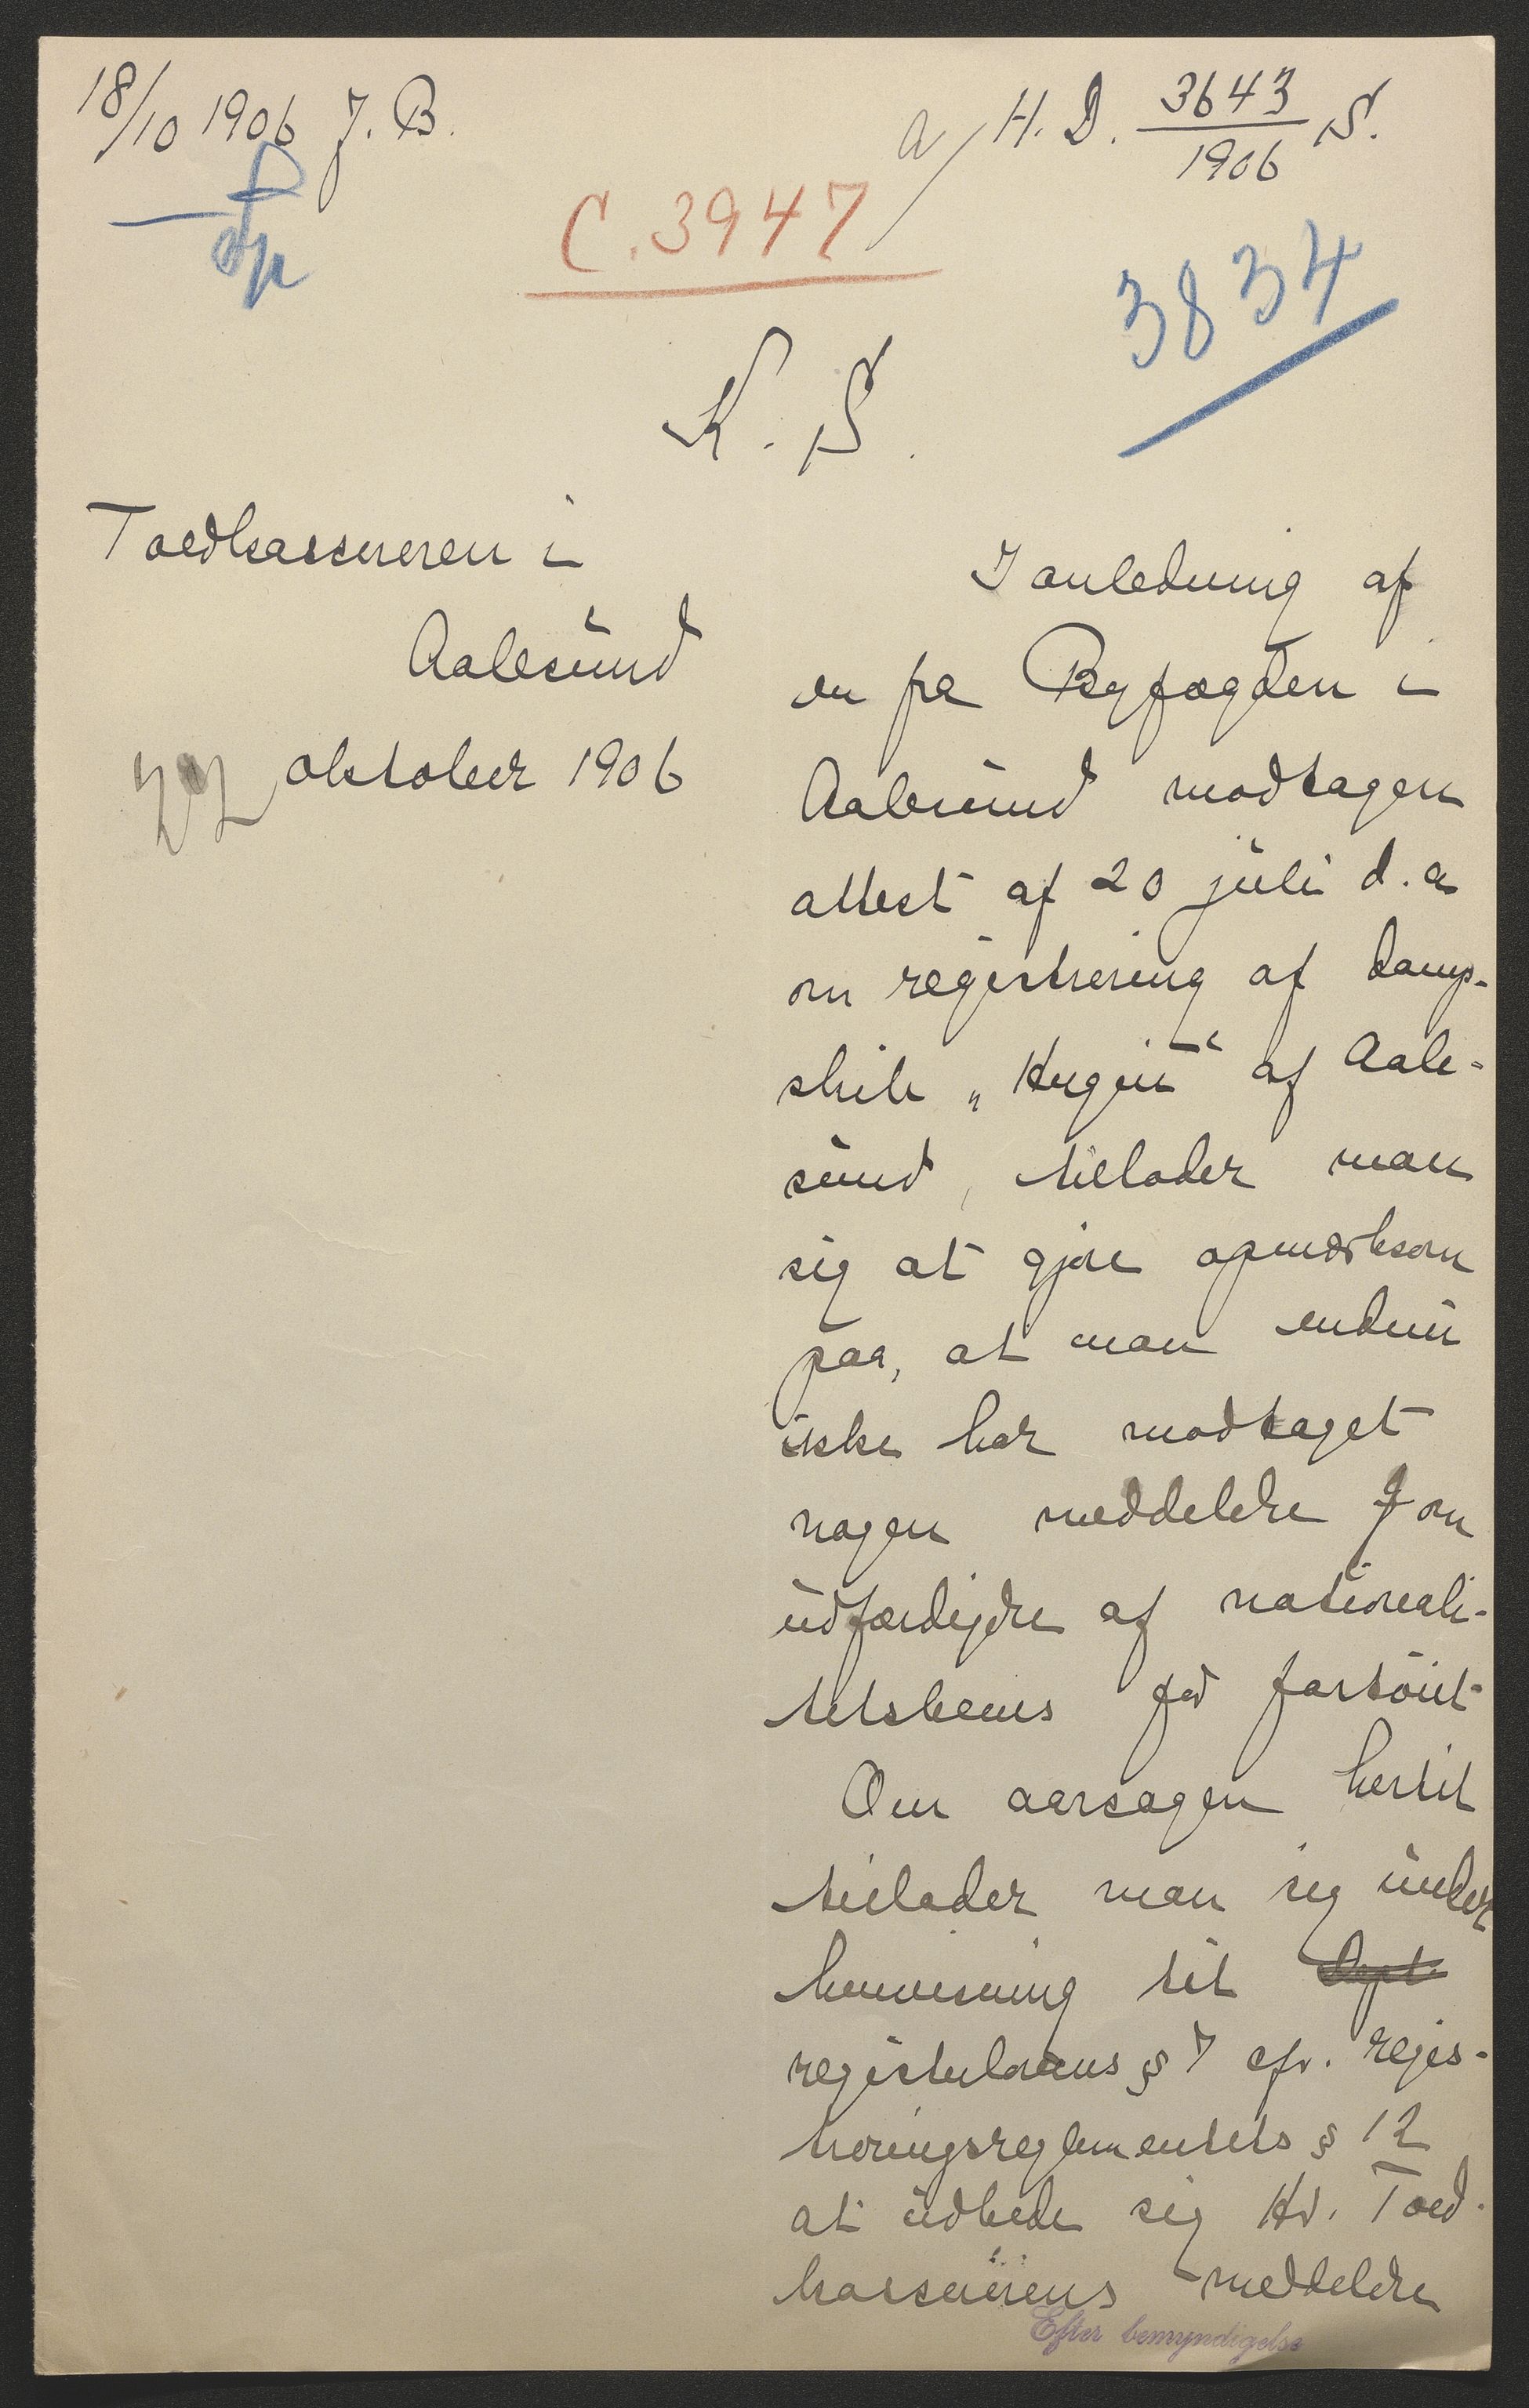 18/10 1906 J. B.
a/ H. D. 3643/1906 S.
C. 3947
3834
K. S.
Toldkassereren i
Aalesund
22 oktober 1906
I anledning af
en fra Byfogden i
Aalesund modtagen
attest af 20 juli d. a
om registrering af damp-
skib „Hugin“ af Aale-
sund, tillader man
sig at gjøre opmærksom
paa, at man endnu
ikke har modtaget
nogen meddelelse om
udfærdigelse af nationali-
tetsbevis for fartöiet.
Om aarsagen hertil
tillader man sig under
henvisning til Dept.
registerlovens § 7 cfr. regis-
treringsreglementets § 12
at udbede sig Hr. Told-
kassererens meddelelse
Efter bemyndigelse